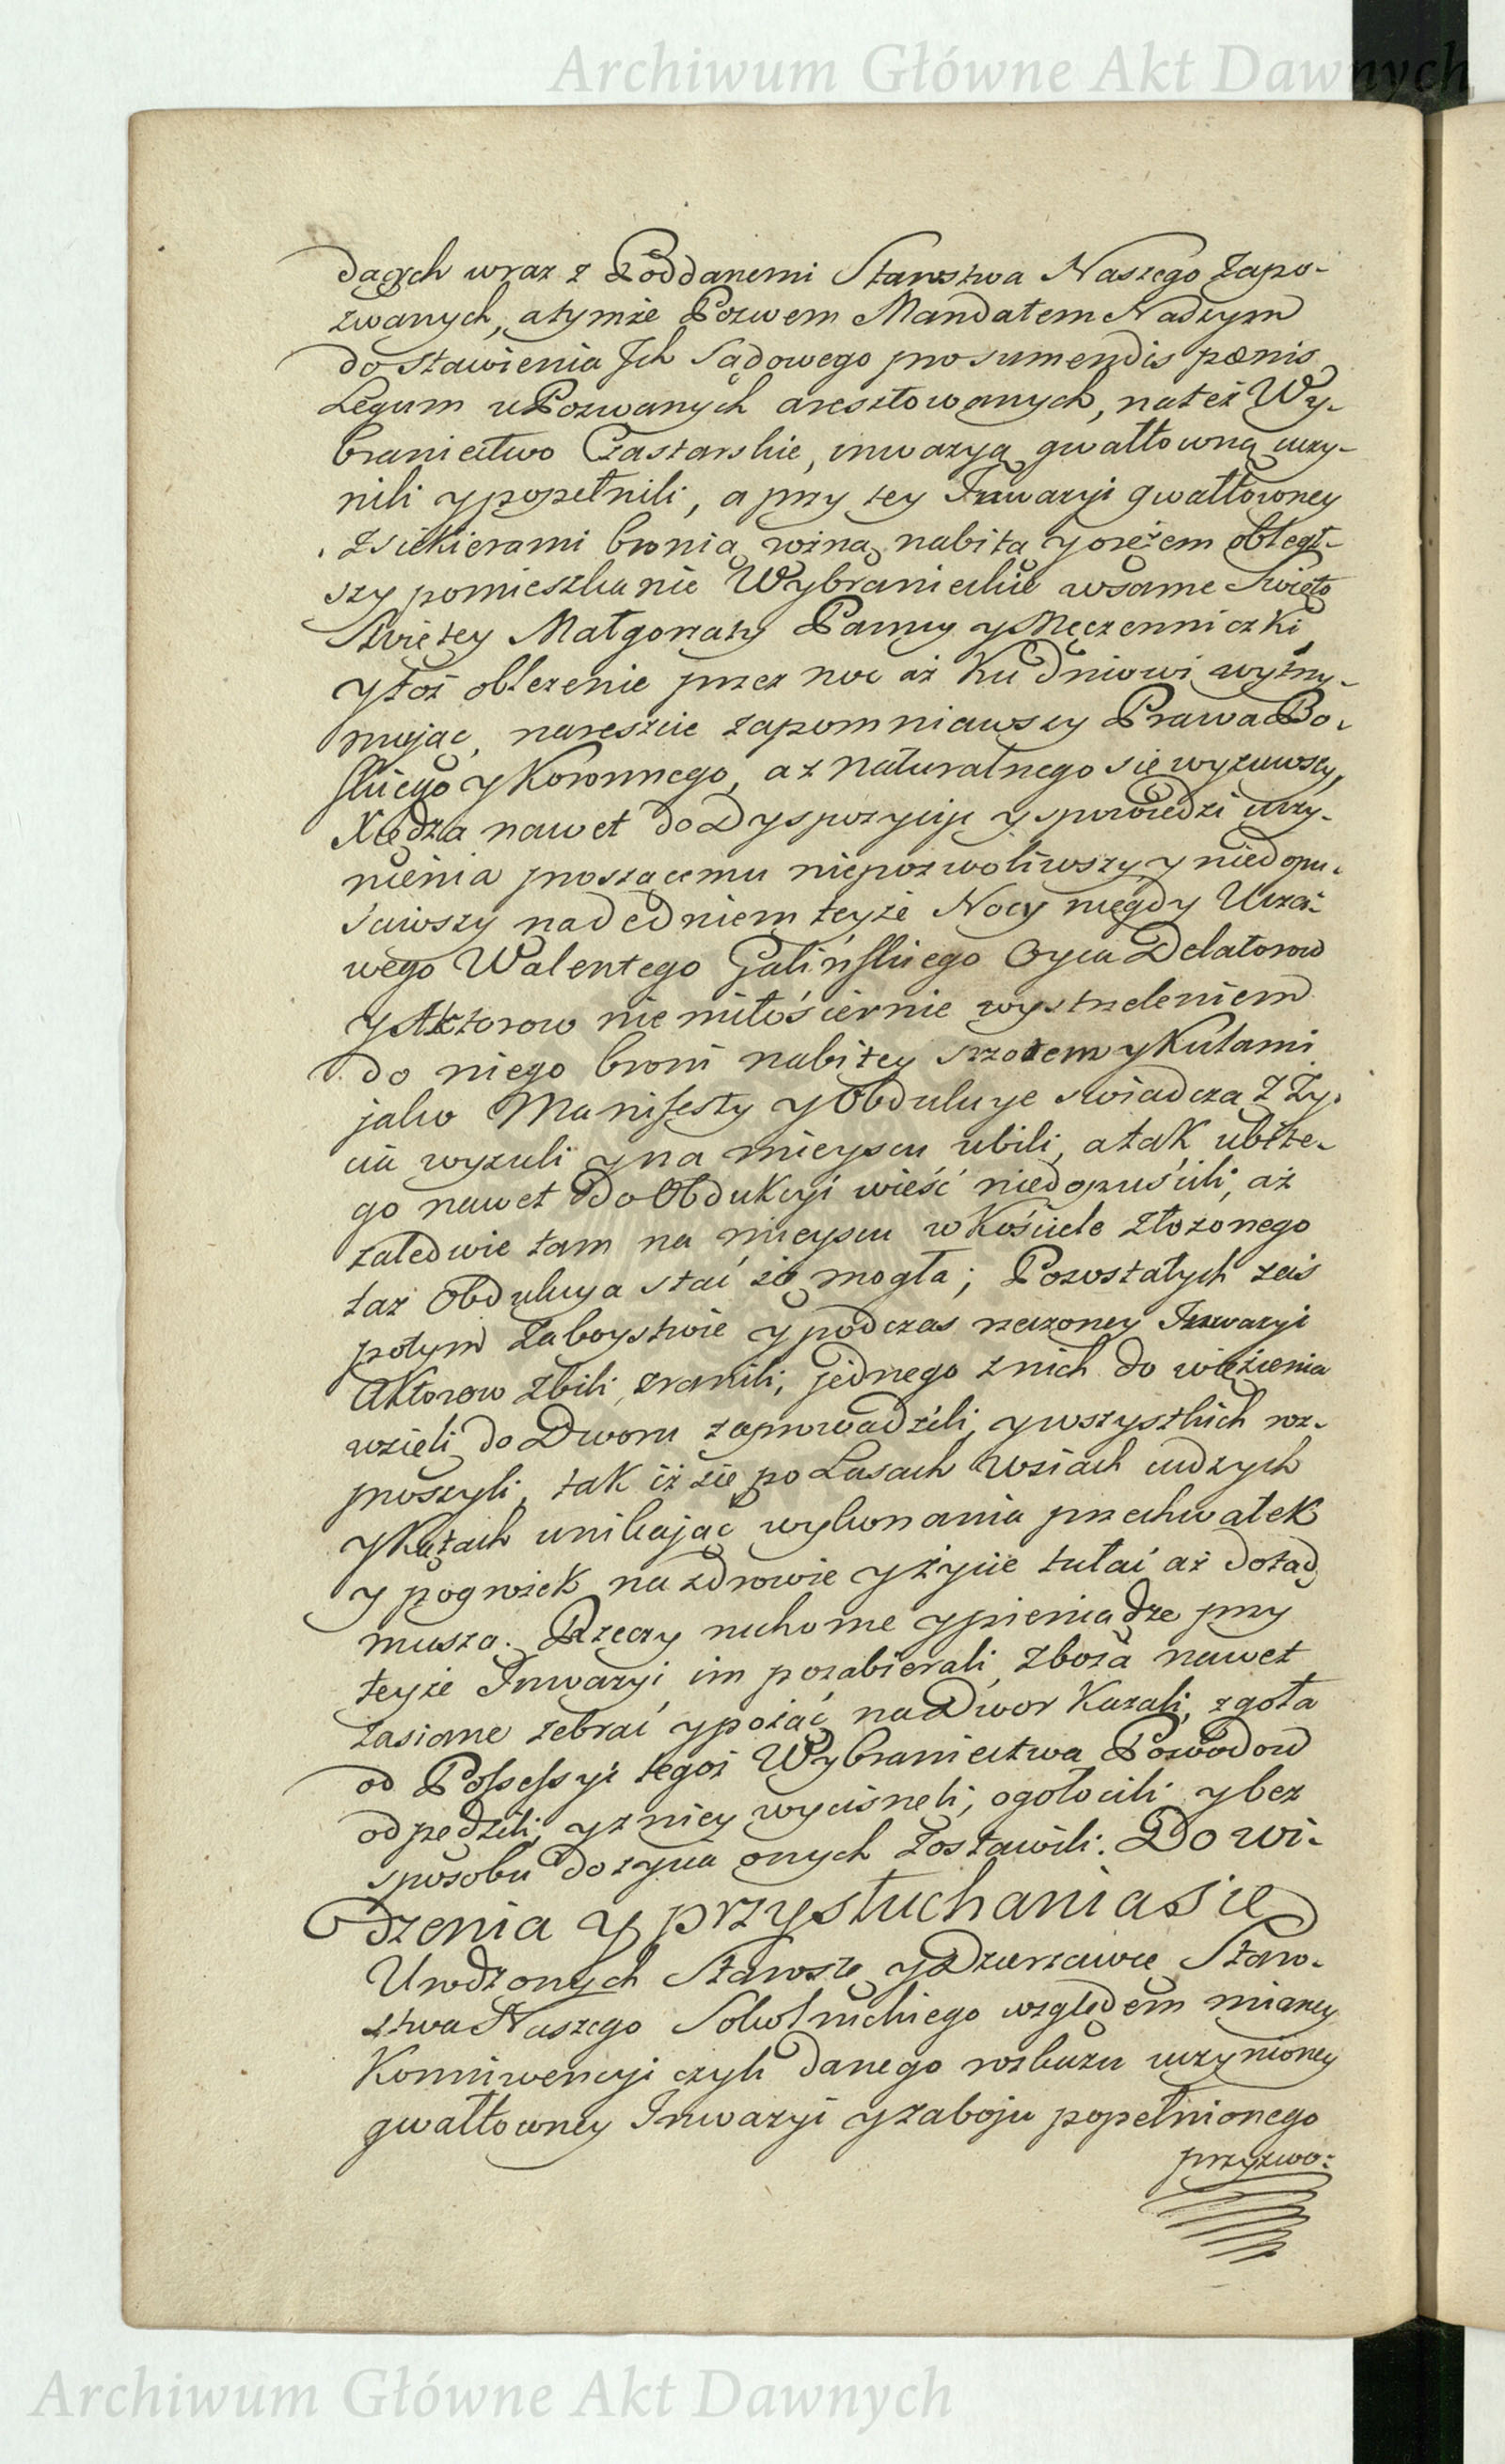 Archiwum Główne Akt Dawnych
dących wraz z Poddanemi Starostwa Naszego Zapo-
zwanych, atymże Pozwem Mandatem Naszym
do stawienia Jch Sądowego pro sumendis pœnis
Legum u Pozwanych aresztowanych, nateż Wy-
braniectwo Czastarskie, inwazyą gwałtowną uczy-
nili y popełnili, a przy tey Inwazyi gwałtowney
z siekierami bronią rożną nabitą y orężem obległ-
szy pomieszkanie Wybranieckie w same Swięto
Swiętey Małgorzaty Panny y Męczenniczki
y toż oblezenie przez noc aż ku dniowi wytrzy-
mując, nareszcie zapomniawszy Prawa Bo-
skiego y Koronnego, a z naturalnego się wyzuwszy,
Xiędza nawet do Dyspozycyi y spowiedzi uczy-
nienia proszącemu niepozwoliwszy y niedopu-
sciwszy nadedniem teyże Nocy niegdy Uczci-
wego Walentego Galińskiego Oyca Delatorow
y Aktorow niemiłośiernie wystrzeleniem
do niego broni nabitey szrotem y Kulami
jako Manifesty y Obdukcye swiadczą z Ży-
cia wyzuli y na mieyscu ubili, a tak ubite-
go nawet do Obdukcyi wieść niedopuścili, aż
zaledwie tam na mieyscu w Kościele złożonego
taż Obdukcya stać się mogła; Pozostałych zaś
potym Zaboystwie y podczas rzeczoney Inwazyi
Aktorow zbili, zranili, jednego z nich do więzienia
wzieli, do Dworu zaprowadzili, y wszystkich roz-
proszyli, tak iż się po Lasach Wsiach cudzych
y Kątach unikając wykonania przechwałek
y pogrożek na zdrowie y życie tułać aż dotąd
muszą. Rzeczy ruchome y pieniądze przy
teyże Inwazyi im pozabierali, Zboża nawet
zasiane zebrać y pożąć na Dwor Kazali, zgoła
od Possessyi tegoż Wybraniectwa Powodow
odpędzili, y z niey wycisneli, ogołocili y bez
sposobu do zycia onych Zostawili. Do wi-
dzenia y przysłuchania się
Urodzonych Starostę y Dzierzawcę Staro-
stwa Naszego Sokolnickiego względem mianey
Konniwencyi czyli danego rozkazu uczynioney
gwałtowney Inwazyi y zaboju popełnionego
przyzwo:
Archiwum Główne Akt Dawnych